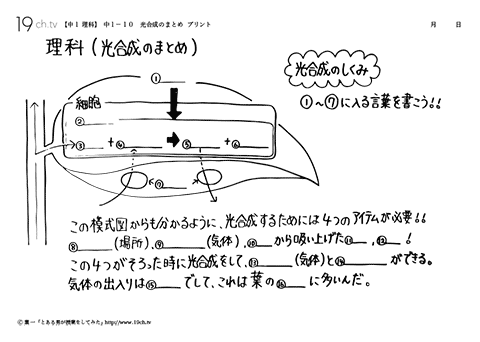 19ch.tv 【中1 理科】 中1-10 光合成のまとめ プリント 月 日
理科(光合成のまとめ)
光合成のしくみ
①~⑦に入る言葉を書こう!!
①
細胞
②
③ + ④ ⑤ + ⑥
⑦
この模式図からも分かるように、光合成するためには4つのアイテムが必要!!
⑧ (場所)、⑨ (気体)、⑩ から吸い上げた⑪ 、⑫ !
この4つがそろった時に光合成をして、⑬ (気体)と⑭ ができる。
気体の出入りは⑮ でして、これは葉の⑯ に多いんだ。
© 葉一「とある男が授業をしてみた」http://www.19ch.tv